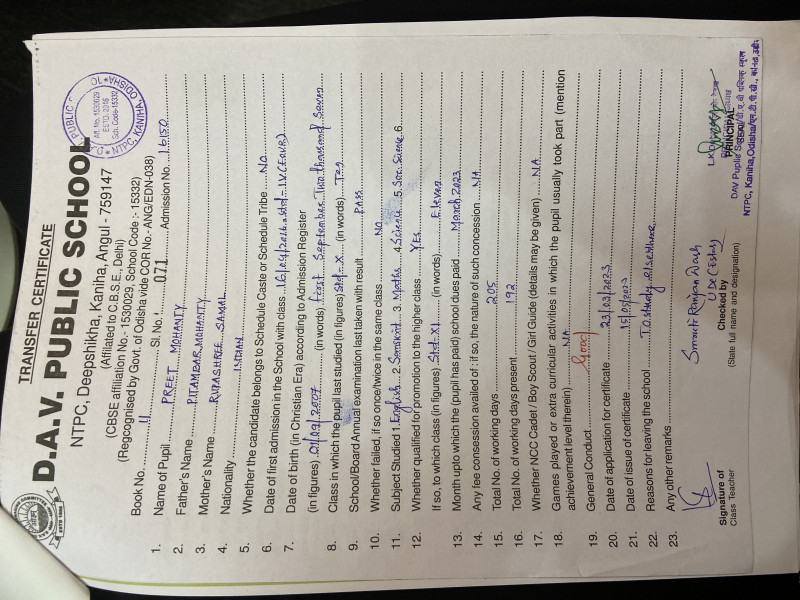 TRANSFER CERTIFICATE
D.A.V. PUBLIC SCHOOL
NTPC, Deepshikha, Kaniha, Angul - 759147
(Affiliated to C.B.S.E., Delhi)
(CBSE affiliation No.- 1530029, School Code :- 15332)
(Regcognised by Govt. of Odisha vide COR No.- ANG/EDN-038)
PUBLIC
Afl. No. 1530029
ESTD. 2016
Sch. Code-15332
NTPC, KANIHA, ODISHA
Book No. 4 Sl. No. 071 Admission No. 16150
1. Name of Pupil PREET MOHANTY
2. Father's Name PITAMBAR MOHANTY
3. Mother's Name RUTASHREE SAMAL
4. Nationality INDIAN
5. Whether the candidate belongs to Schedule Caste or Schedule Tribe NO
6. Date of first admission in the School with class 16/04/2016 std-IV(FOUR)
7. Date of birth (in Christian Era) according to Admission Register
(in figures) 01/09/2007 (in words) first September Two thousand Seven
8. Class in which the pupil last studied (in figures) Std-X (in words) Ten
9. School/Board Annual examination last taken with result PASS
10. Whether failed, if so once/twice in the same class NO
11. Subject Studied 1. English 2. Sanskrit 3. Maths 4. Science 5. Soc. Science 6
12. Whether qualified for promotion to the higher class YES
If so, to which class (in figures) Std-XI (in words) Eleven
13. Month upto which the (pupil has paid) school dues paid March 2023
14. Any fee consession availed of : if so, the nature of such concession NA
15. Total No. of working days 205
16. Total No. of working days present 192
17. Whether NCC Cadet / Boy Scout / Girl Guide (details may be given) NA
18. Games played or extra curricular activities in which the pupil usually took part (mention
achievement level therein) NA
19. General Conduct Good
20. Date of application for certificate 23/03/2023
21. Date of issue of certificate 15/05/2023
22. Reasons for leaving the school T.O. study elsewhere
23. Any other remarks
Signature of
Class Teacher
Smruti Ranjan Dash
UDC (Estt)
Checked by
(State full name and designation)
PRINCIPAL
DAV Public School
NTPC, Kaniha, Odisha